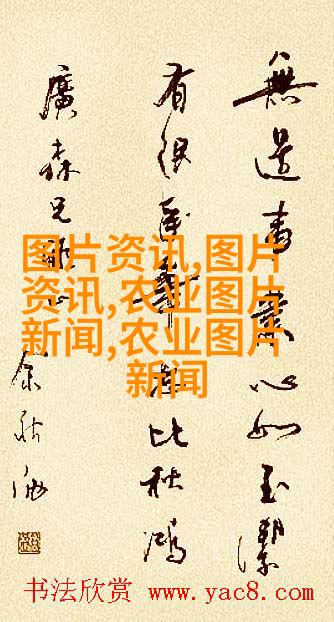 無心如玉潔
有比秋鴻
廣森兄
余秋雨
图片资讯,图片
资讯,农业图片
新闻,农业图片
新闻
书法欣赏 www.yac8.com